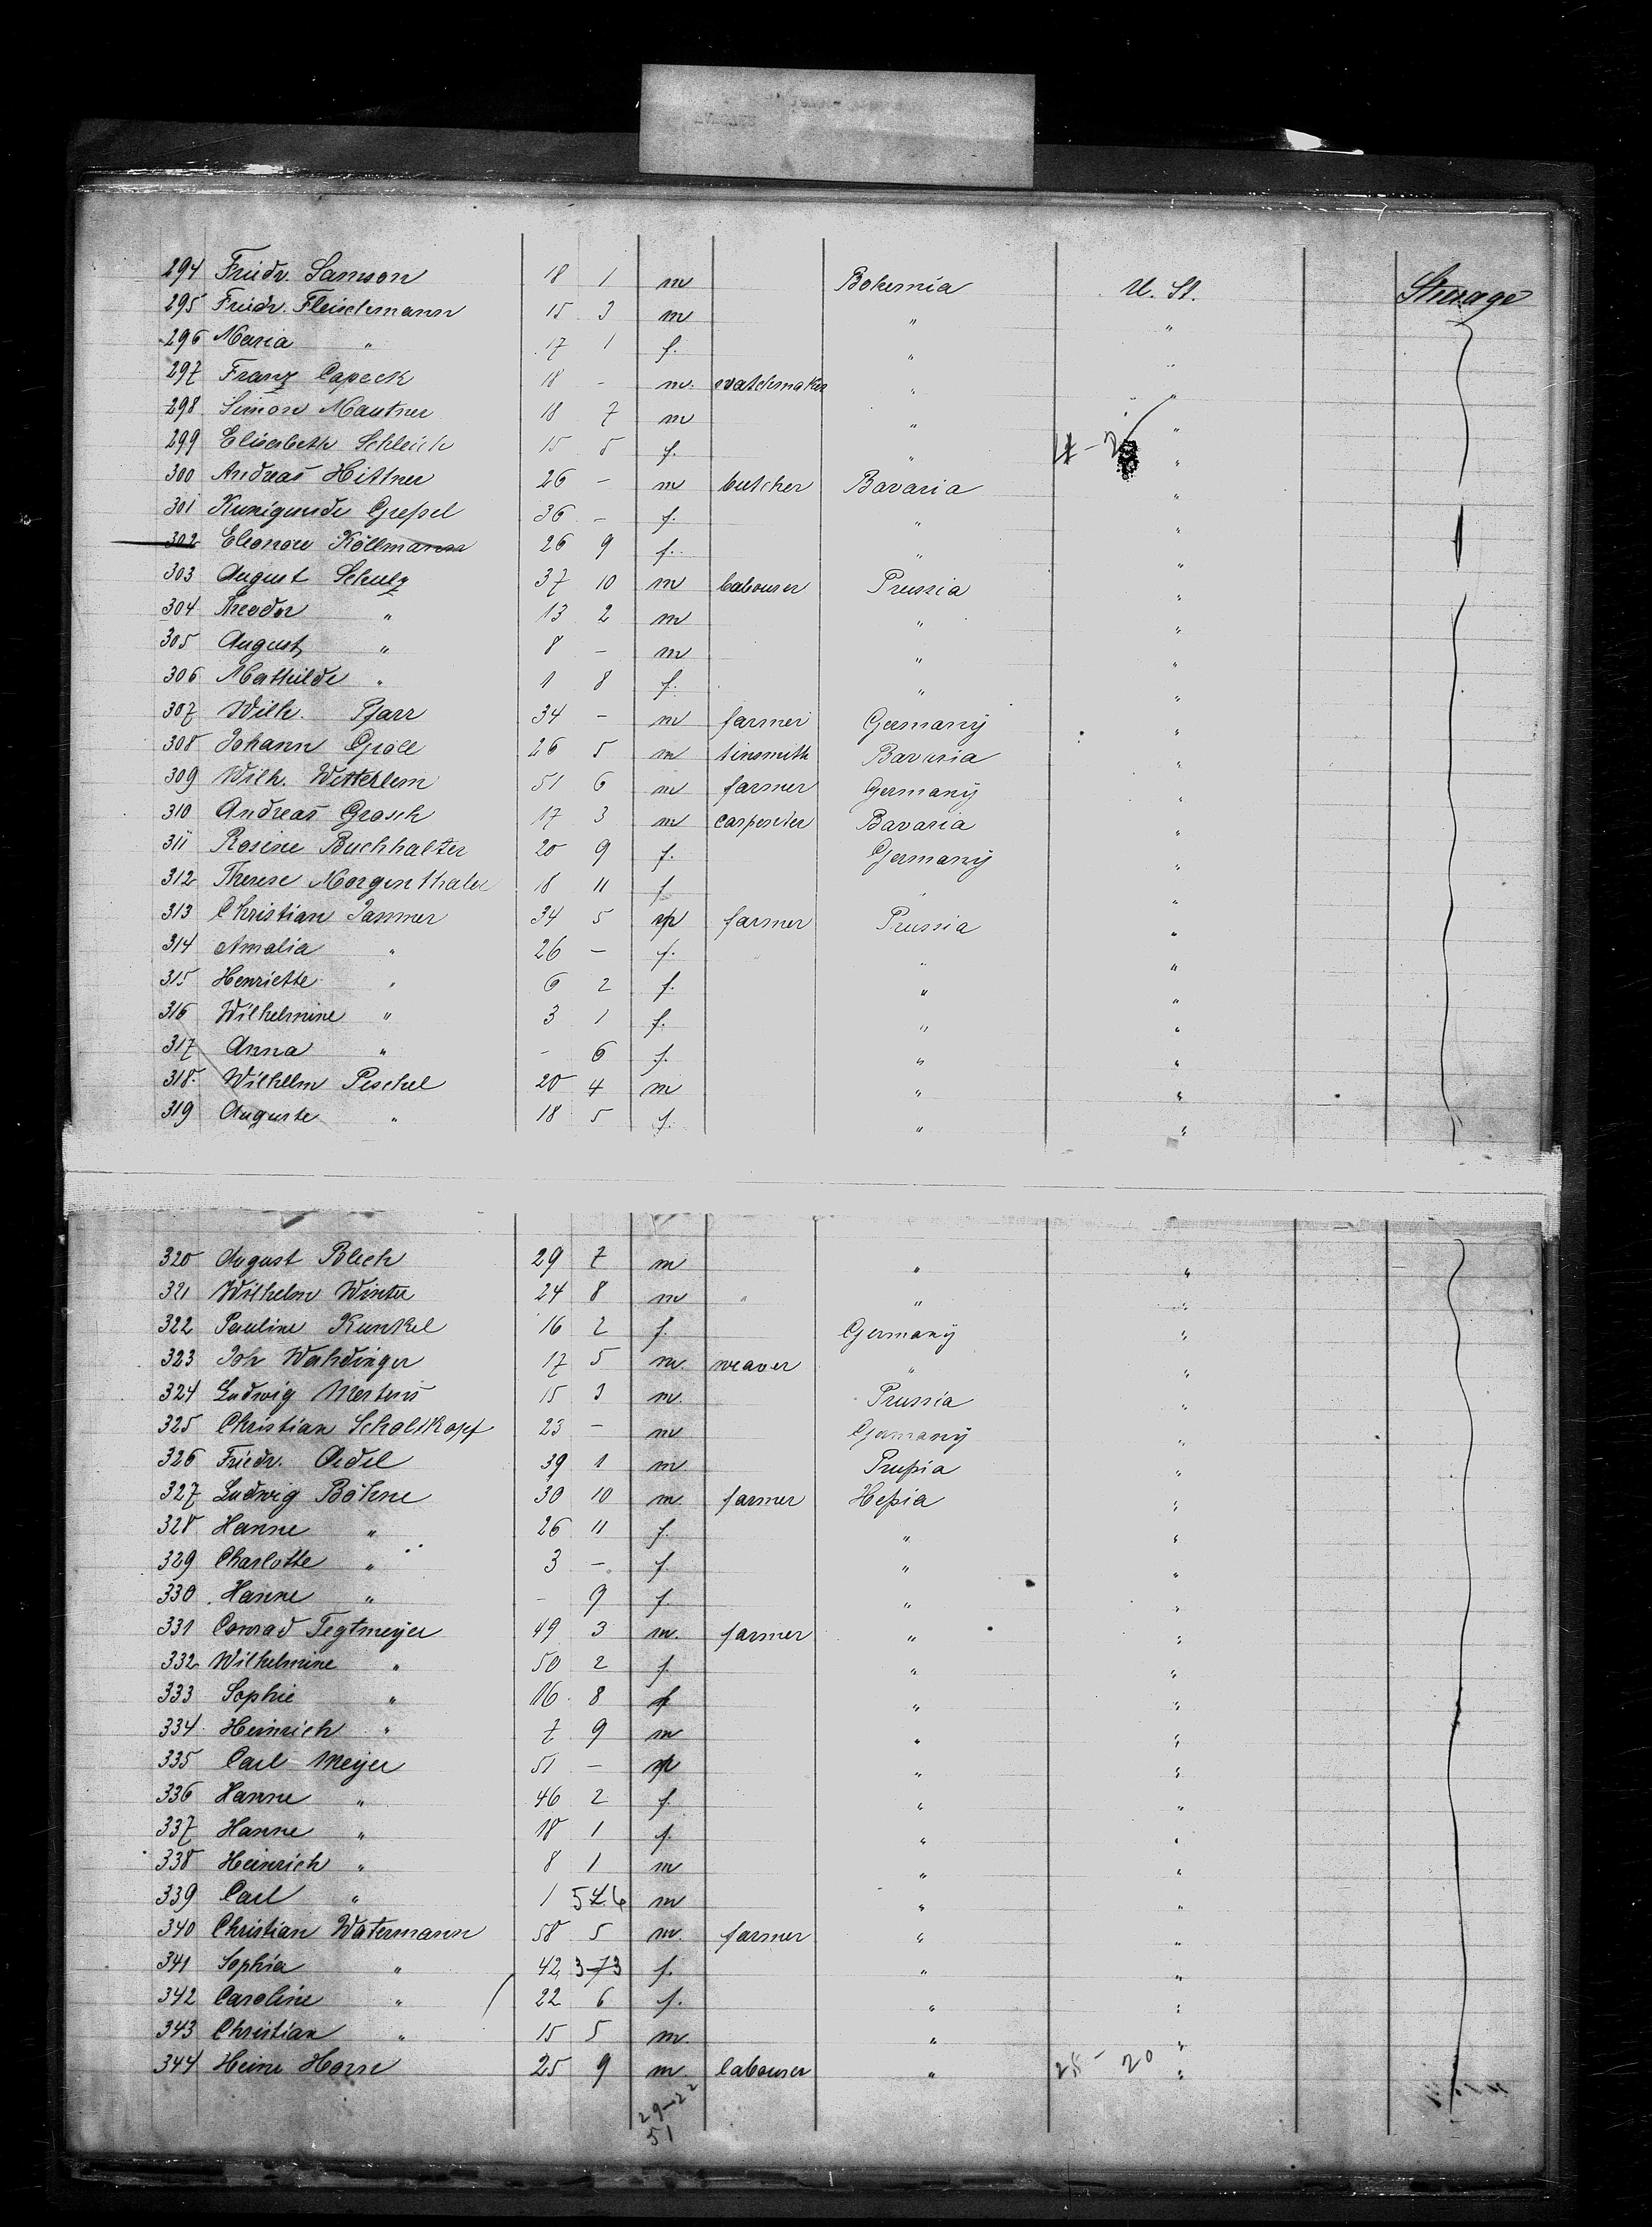 294 Friedr. Samson 18 1 m Bohemia U. St. Steerage
295 Friedr. Fleischmann 15 3 m " "
296 Maria " 17 1 f. " "
297 Franz Capeck 18 - m. watchmaker " "
298 Simon Mautner 18 7 m " "
299 Elisabeth Schleich 15 5 f. " "
300 Andreas Hittner 26 - m butcher Bavaria "
301 Kunigunde Greßel 36 - f. " "
302 Eleonore Köllmann 26 9 f. " "
303 August Schulz 37 10 m labourer Prussia "
304 Theodor " 13 2 m " "
305 August " 8 - m " "
306 Mathilde " 1 8 f. " "
307 Wilh. Pfarr 34 - m farmer Germany "
308 Johann Gröll 26 5 m tinsmith Bavaria "
309 Wilh. 51 6 m farmer Germany "
310 Andreas Grosch 17 3 m carpenter Bavaria "
311 Rosine Buchhalter 20 9 f. Germany "
312 Therese Morgenthaler 18 11 f. " "
313 Christian Jammer 34 5 m farmer Prussia "
314 Amalia " 26 - f. " "
315 Henriette " 6 2 f. " "
316 Wilhelmine " 3 1 f. " "
317 Anna " - 6 f. " "
318. Wilhelm Peschel 20 4 m " "
319 Auguste " 18 5 f. " "
320 August Blech 29 7 m " "
321 Wilhelm Winter 24 8 m " " "
322 Pauline Kunkel 16 2 f. Germany "
323 Joh 17 5 m. weaver " "
324 Ludwig Mertens 15 3 m. Prussia "
325 Christian Schalskopf 23 - m Germany "
326 Friedr. Oedel 39 1 m Prußia "
327 Ludwig Böhne 30 10 m. farmer Heßia "
328 Hanne " 26 11 f. " "
329 Charlotte " 3 - f. " "
330 Hanne " - 9 f. " "
331 Conrad Tegtmeyer 49 3 m. farmer " "
332 Wilhelmine " 50 2 f. " "
333 Sophie " 16 8 f " "
334 Heinrich " 7 9 m " "
335 Carl Meyer 51 - m " "
336 Hanne " 46 2 f. " "
337 Hanne " 18 1 f. " "
338 Heinrich " 8 1 m " "
339 Carl " 1 m " "
340 Christian Watermann 58 5 m. farmer " "
341 Sophia " 42 f. " "
342 Caroline " 22 6 f. " "
343 Christian " 15 5 m. " "
344 Heinr Horn 25 9 m. labourer " 25 - 20 "
29-22
51